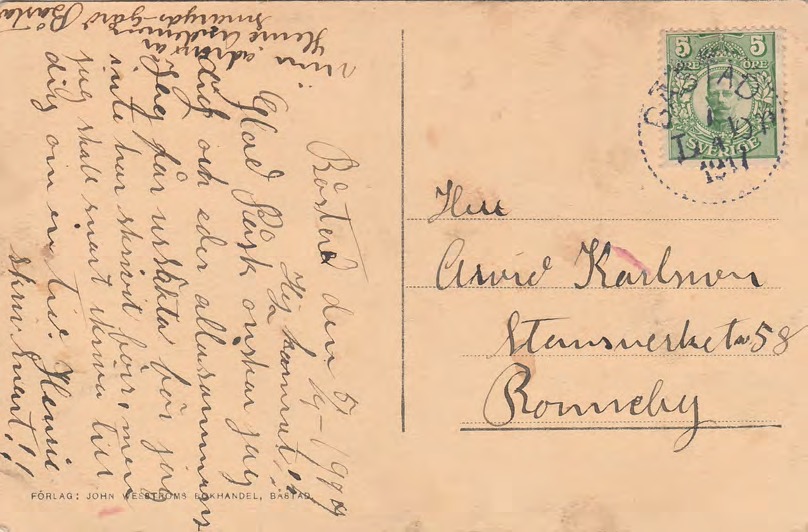 Båstad den 5/4-1917
Hej kamrat!!
Glad Påsk önskar jag
dig och eder allesammans
Jag får ursäkta bör jag
inte har skrivit börs, men
jag skall snart skriva till
dig om en tid. Henric
skriv snart!!
min adress är
Henric
Smaryds-gård Båstad
5 5
ÖRE ÖRE
SVERIGE
1917
Herr
Arvid Karlsson
Stensverket 58
Ronneby
FÖRLAG: JOHN WESSTRÖMS BOKHANDEL, BÅSTAD.